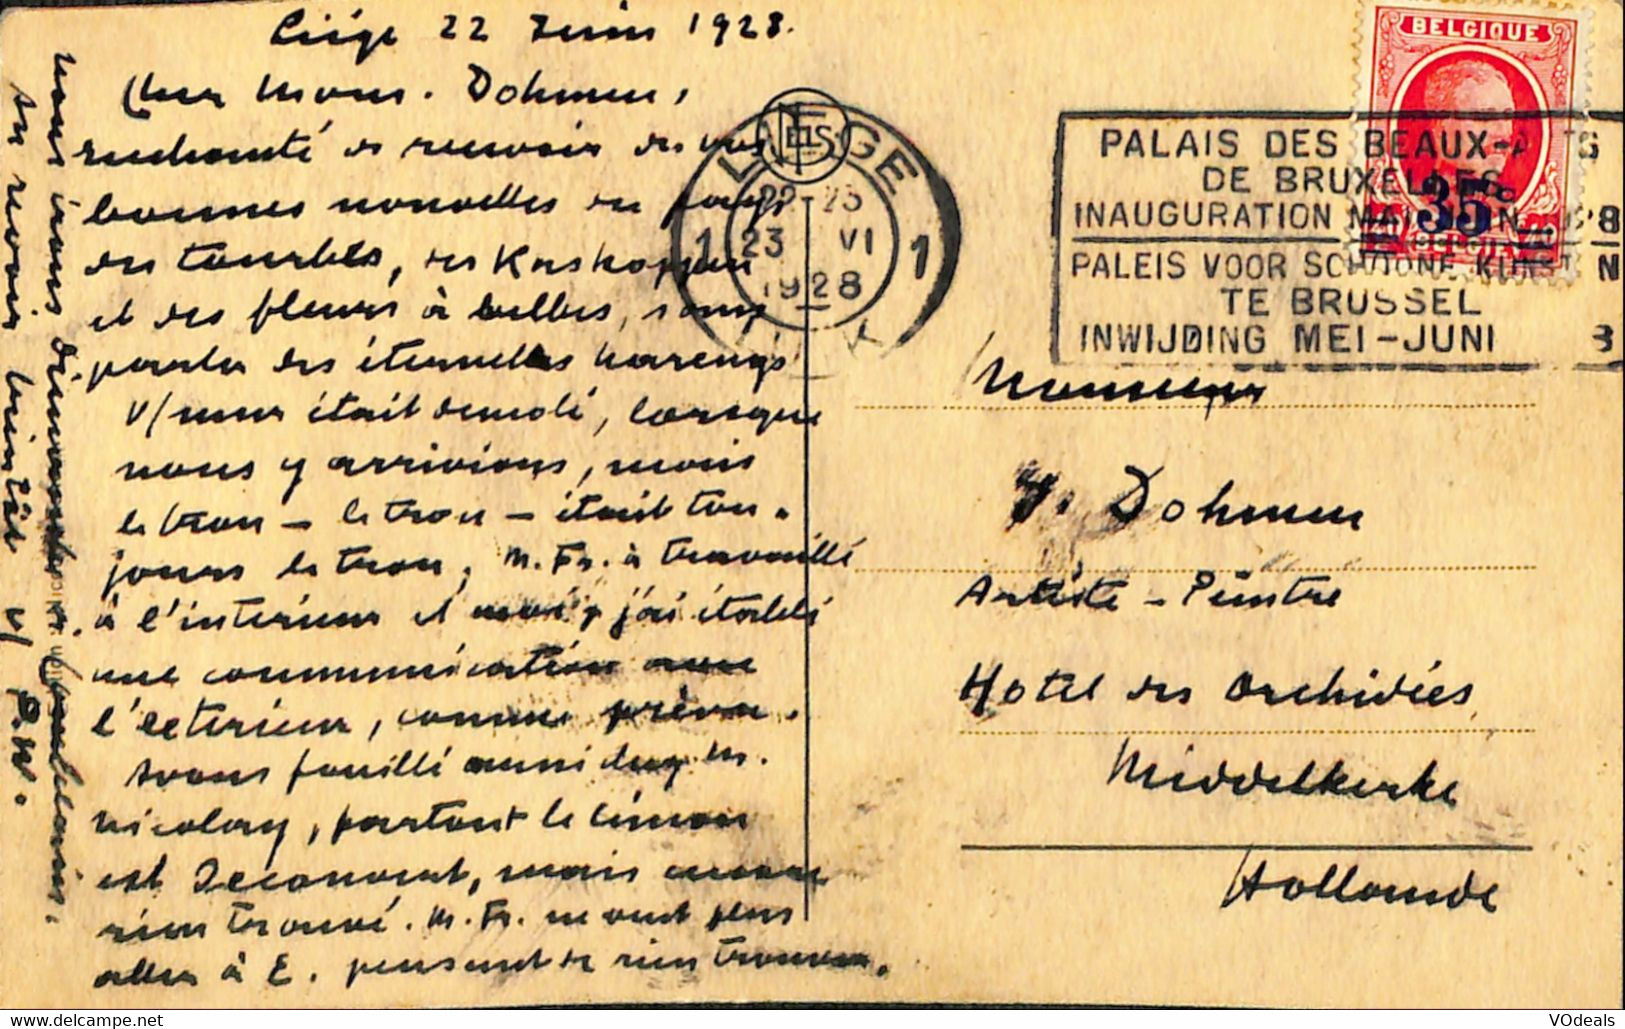 Liége 22 Juin 1928.
Cher Mons. Dohmen,
enchanté de recevoir de vos
bonnes nouvelles du pays
des tourbes, des
et des fleurs à bulbes, sans
parler des éternels harengs
V/ mur était démoli, lorsque
nous y arrivions, mais
le trou – le trou – était tou-
jours le trou. M. Fr. a travaillé
à l'intérieur et moi, j'ai établi
une communication avec
l'extérieur, comme prévu.
Avons fouillé aussi chez M.
Nicolay, partout le limon
est découvert, mais encore
rien trouvé. M. Fr. ne veut plus
aller à E. pensant de rien trouver.
nous irons dimanche
Au revoir bientôt v/ E.W.
ELS
LIÉGE
1 23 VI 1
1928
LUIK
BELGIQUE
35c
PALAIS DES BEAUX-ARTS
DE BRUXELLES
INAUGURATION MAI-JUIN 1928
PALEIS VOOR SCHOONE KUNSTEN
TE BRUSSEL
INWIJDING MEI-JUNI 8
Monsieur
Dohmen
Artiste-Peintre
Hotel des Orchidées
Middelkerke
Hollande
VOdeals